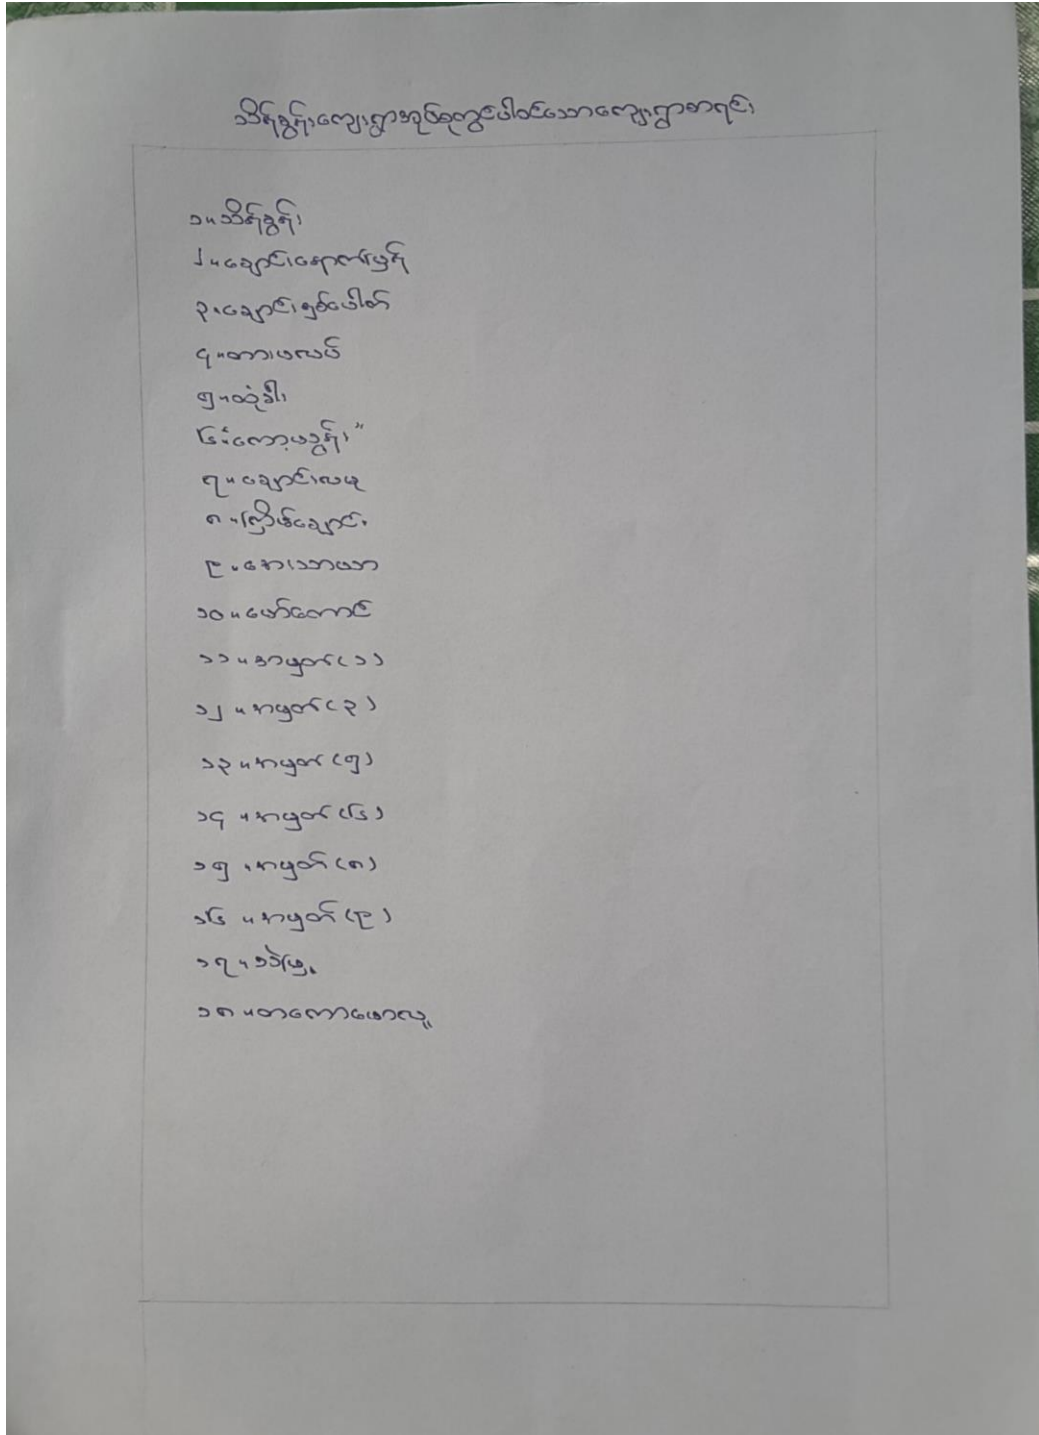 သိန်ခွန်းကျေးရွာအုပ်စုတွင်ပါဝင်သောကျေးရွာစာရင်း
၁။သိန်ခွန်း
၂။ချောင်းနောက်ဖွန်
၃။ချောင်းနှစ်ပေါက်
၄။တားဖလပ်
၅။ထုံခါး
၆။ကော့ဖခွန်း"
၇။ချောင်းလယု
၈။ကြိမ်ချောင်း
၉။နားသာယာ
၁၀။ဖော်တောင်
၁၁။အာမှတ်(၁)
၁၂။အာမှတ်(၃)
၁၃။အာမှတ်(၅)
၁၄။အာမှတ်(၆)
၁၅။အာမှတ်(၈)
၁၆။အာမှတ်(၉)
၁၇။သဲဖြူ
၁၈။တကောဖောလူ